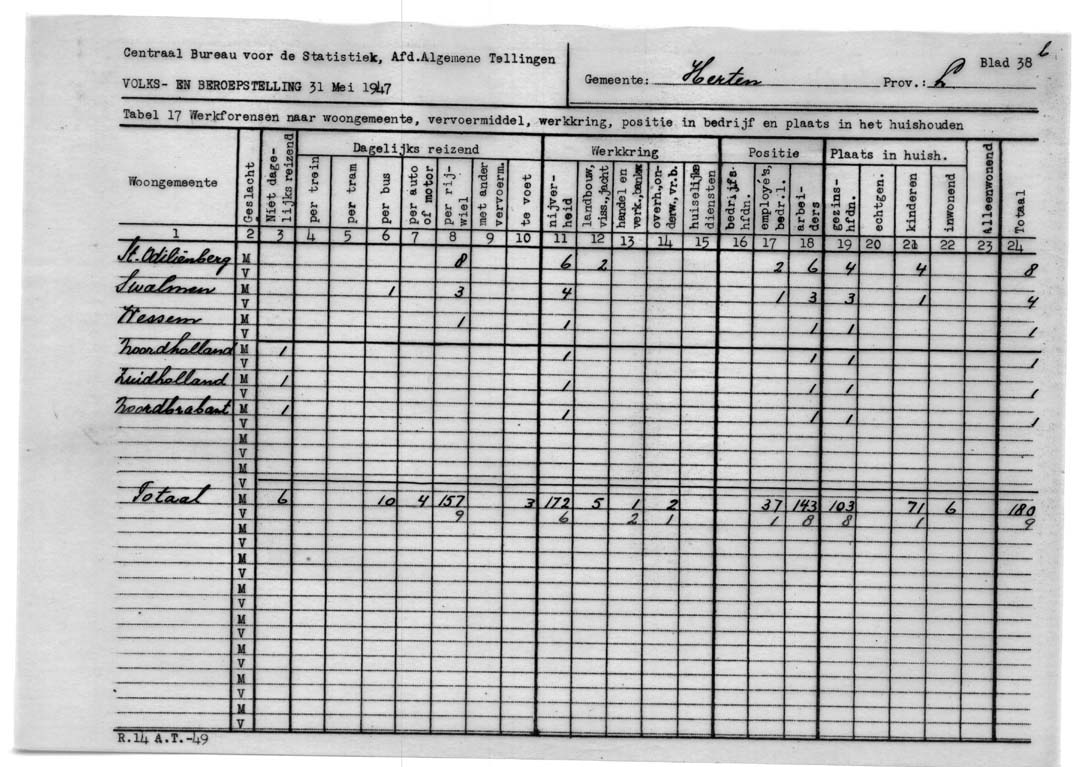 Centraal Bureau voor de Statistiek, Afd.Algemene Tellingen
VOLKS- EN BEROEPSTELLING 31 Mei 1947
Gemeente: Herten Prov.: L
Blad 38 b
Tabel 17 Werkforensen naar woongemeente, vervoermiddel, werkkring, positie in bedrijf en plaats in het huishouden
Woongemeente | Geslacht | Niet dage-lijks reizend | Dagelijks reizend | Werkkring | Positie | Plaats in huish. | Alleenwonend | Totaal
per trein | per tram | per bus | per auto of motor | per rij-wiel | met ander vervoerm. | te voet | nijver-heid | landbouw, viss.,jacht | handel en verk.,bankw | overh.,on-derw.,vr.b. | huiselijke diensten | bedrijfs-hfdn. | employe's, bedr.l. | arbei-ders | gezins-hfdn. | echtgen. | kinderen | inwonend
1 2 3 4 5 6 7 8 9 10 11 12 13 14 15 16 17 18 19 20 21 22 23 24
St. Odiliënberg M 8 6 2 2 6 4 4 8
V
Swalmen M 1 3 4 1 3 3 1 4
V
Wessem M 1 1 1 1 1
V
Noordholland M 1 1 1 1 1
V
Zuidholland M 1 1 1 1 1
V
Noordbrabant M 1 1 1 1 1
V
M
V
M
V
Totaal M 6 10 4 157 3 172 5 1 2 37 143 103 71 6 180
V 9 6 2 1 1 8 8 1 9
M
V
M
V
M
V
M
V
M
V
M
V
M
V
R.14 A.T.-49